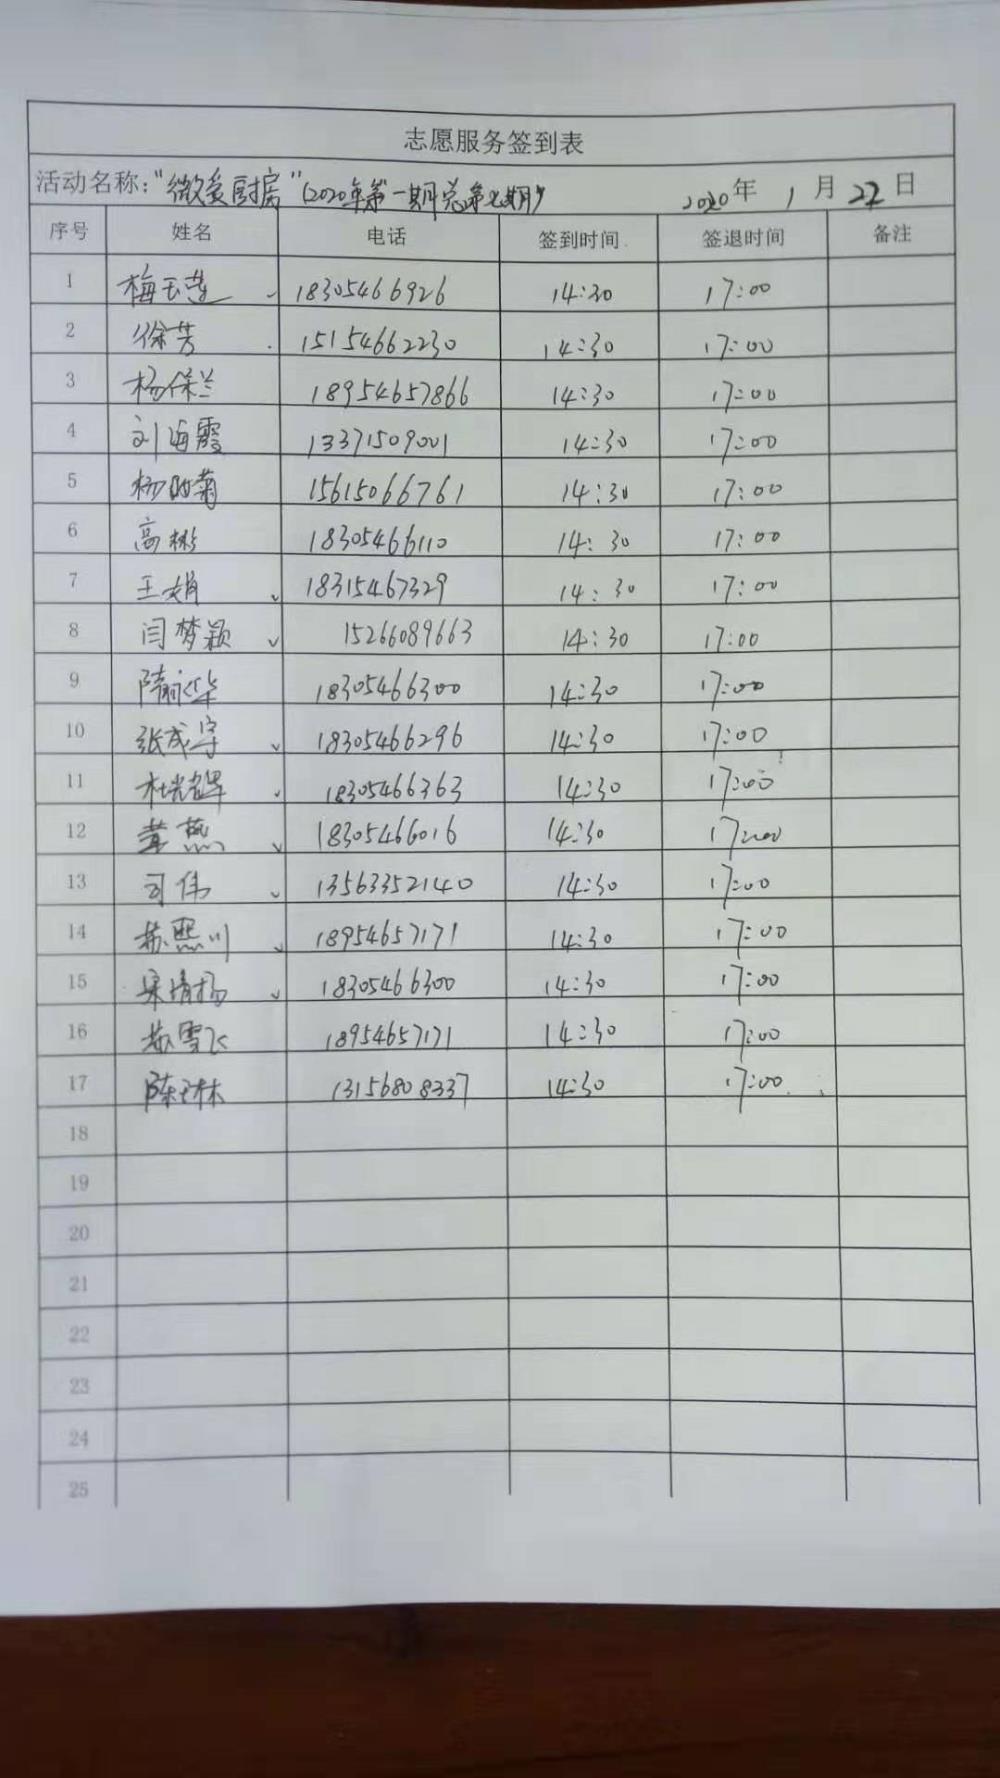 志愿服务签到表
活动名称："微爱厨房"（2020年第一期总第七期） 2020年 1月 22日
序号 姓名 电话 签到时间 签退时间 备注
1 梅玉莲 18305466926 14:30 17:00
2 徐芳 15154662230 14:30 17:00
3 杨保兰 18954657866 14:30 17:00
4 刘海霞 13371509001 14:30 17:00
5 杨 菊 15615066761 14:30 17:00
6 高彬 18305466110 14:30 17:00
7 王娟 18315467329 14:30 17:00
8 闫梦颖 15266089663 14:30 17:00
9 隋 华 18305466300 14:30 17:00
10 张成宇 18305466296 14:30 17:00
11 杜光辉 18305466363 14:30 17:00
12 燕 18305466016 14:30 17:00
13 司伟 13563352140 14:30 17:00
14 苏熙川 18954657171 14:30 17:00
15 梁清扬 18305466300 14:30 17:00
16 苏雪飞 18954657171 14:30 17:00
17 陈玉林 13156808337 14:30 17:00
18
19
20
21
22
23
24
25